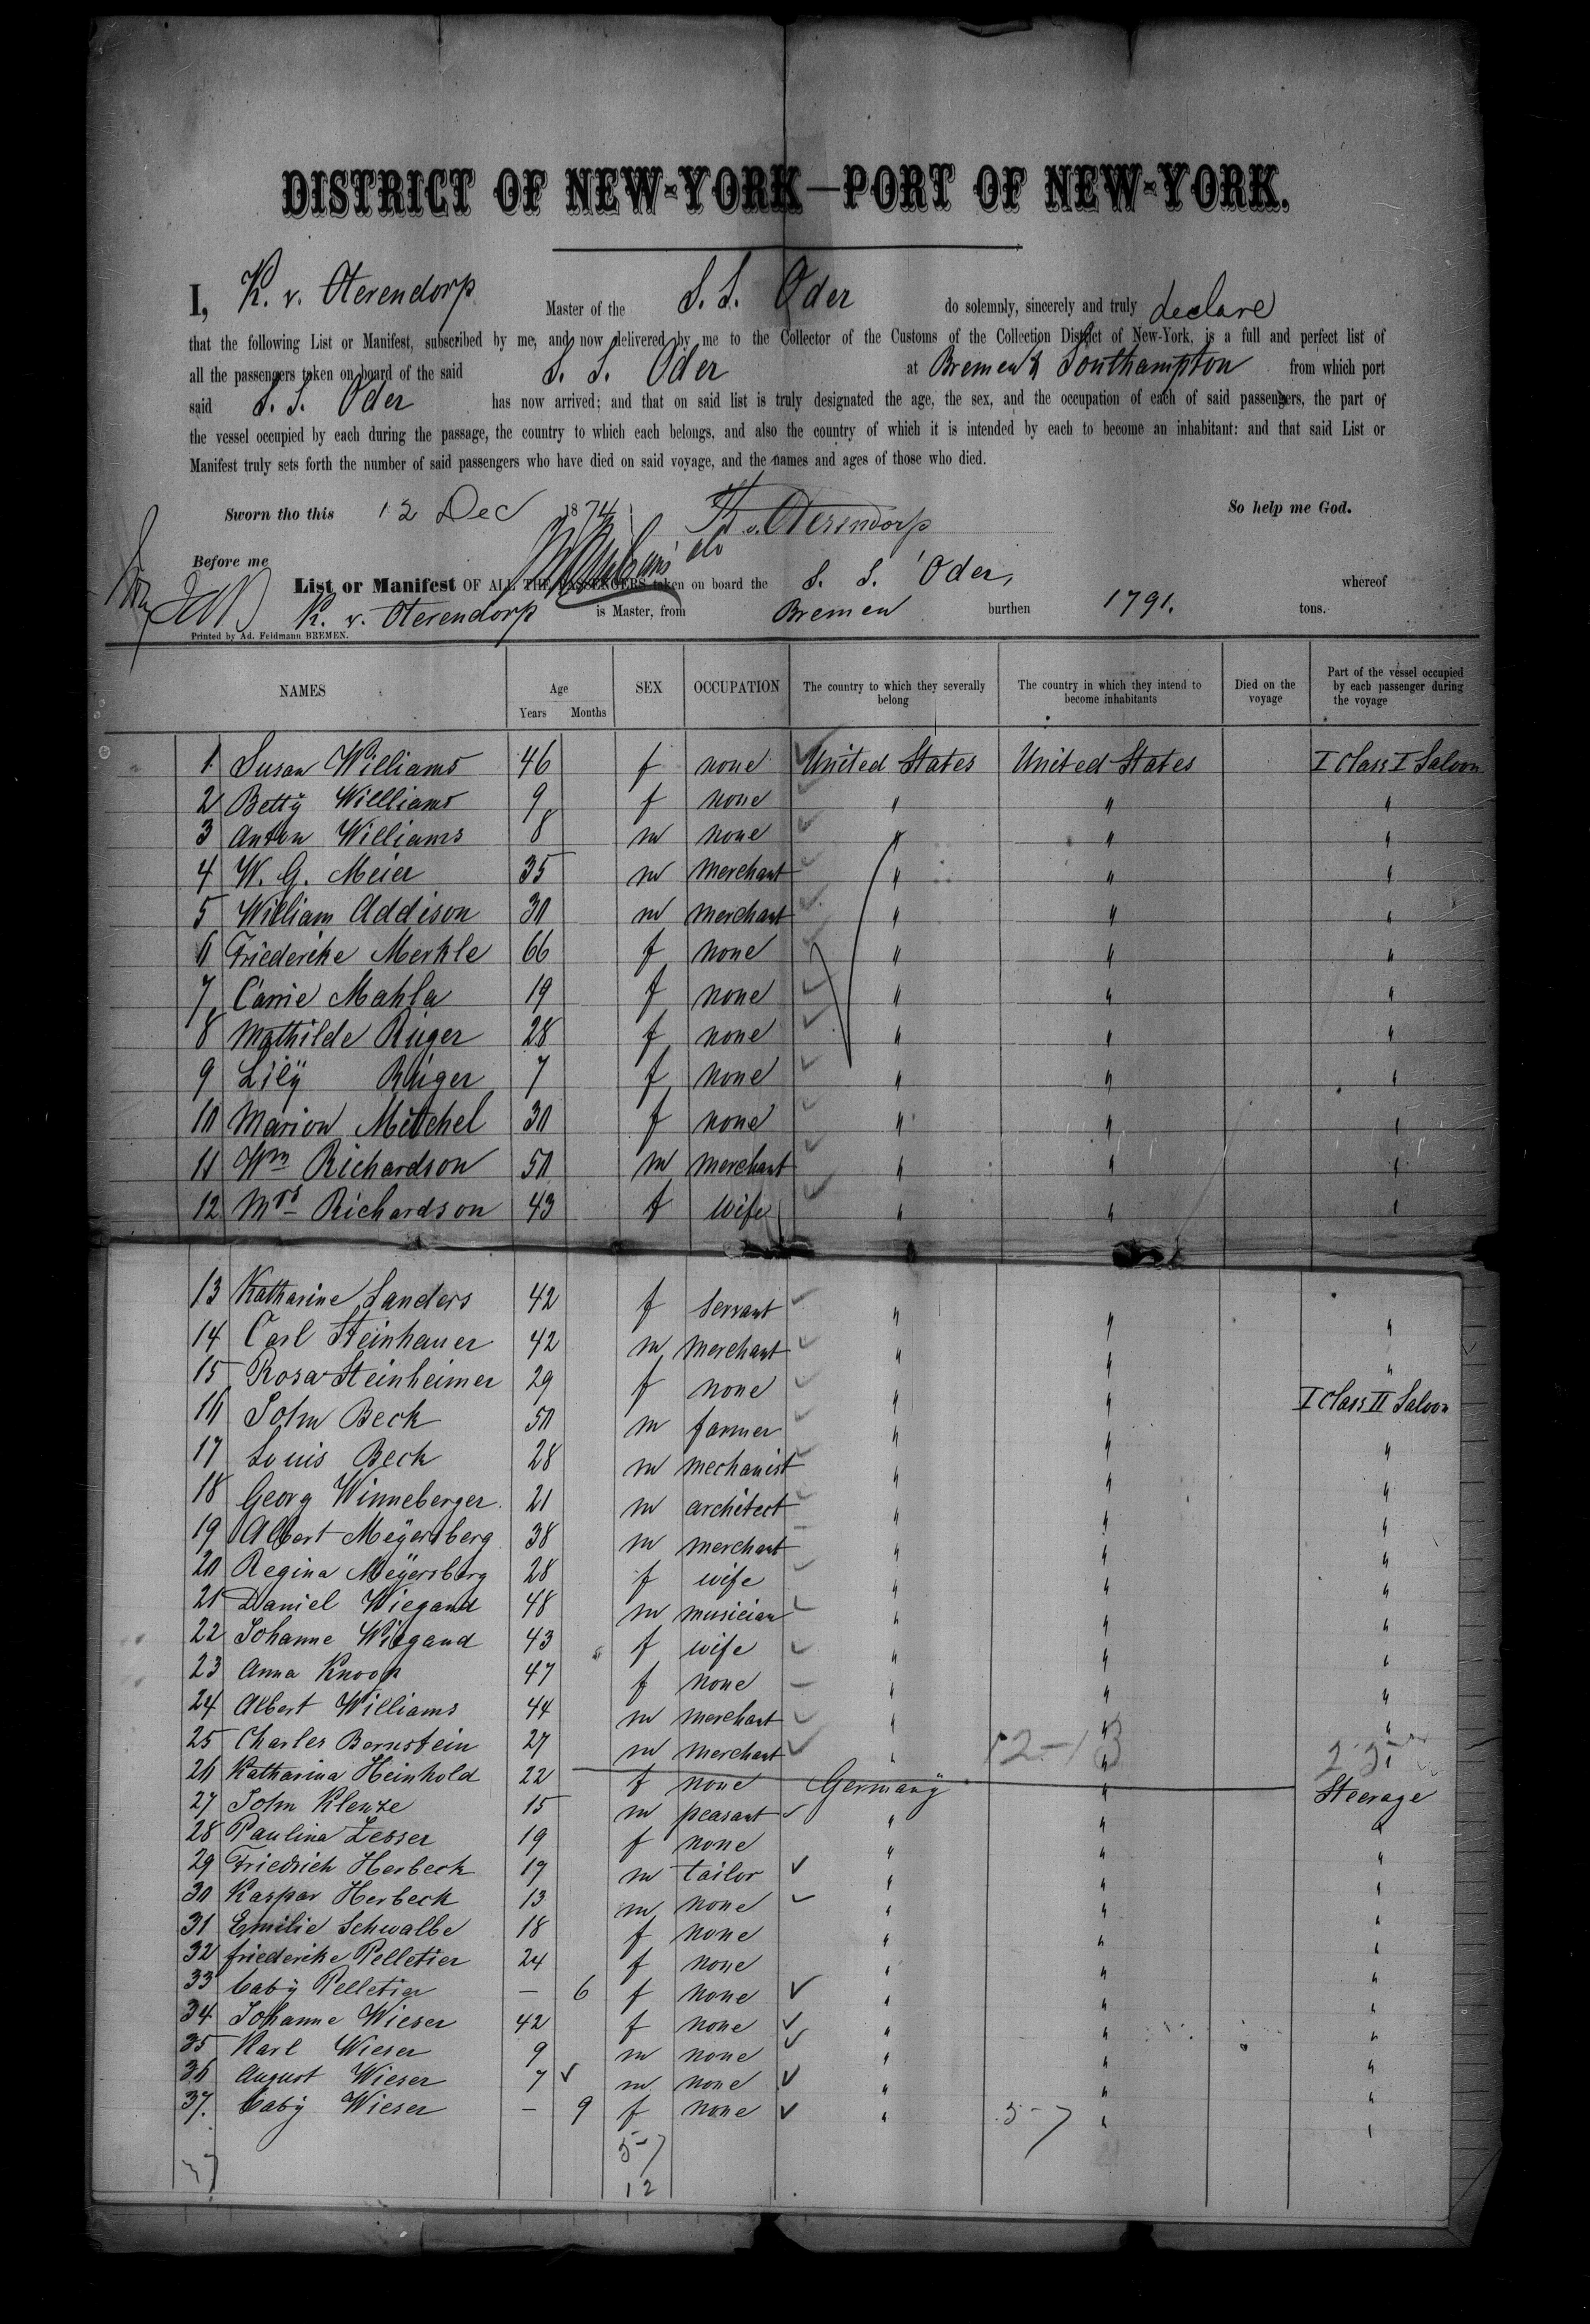 DISTRICT OF NEW-YORK—PORT OF NEW-YORK.
I, K. v. Oterendorp Master of the S. S. Oder do solemnly, sincerely and truly declare
that the following List or Manifest, subscribed by me, and now delivered by me to the Collector of the Customs of the Collection District of New-York, is a full and perfect list of
all the passengers taken on board of the said S. S. Oder at Bremen & Southampton from which port
said S. S. Oder has now arrived; and that on said list is truly designated the age, the sex, and the occupation of each of said passengers, the part of
the vessel occupied by each during the passage, the country to which each belongs, and also the country of which it is intended by each to become an inhabitant: and that said List or
Manifest truly sets forth the number of said passengers who have died on said voyage, and the names and ages of those who died.
Sworn tho this 12 Dec 1874 K v. Oterendorp So help me God.
Before me
List or Manifest OF ALL THE PASSENGERS taken on board the S. S. Oder, whereof
K. v. Oterendorp is Master, from Bremen burthen 1791. tons.
Printed by Ad. Feldmann BREMEN.
NAMES Age Years Months SEX OCCUPATION The country to which they severally belong The country in which they intend to become inhabitants Died on the voyage Part of the vessel occupied by each passenger during the voyage
1 Susan Williams 46 f none United States United States I Class I Saloon
2 Betty Williams 9 f none " " "
3 Anton Williams 8 m none " " "
4 W. G. Meier 35 m merchant " " "
5 William Addison 30 m merchant " " "
6 Friederike Merkle 66 f none " " "
7 Carrie Mahla 19 f none " " "
8 Mathilde Rüger 28 f none " " "
9 Lily Rüger 7 f none " " "
10 Marion Mitchel 30 f none " " "
11 Wm Richardson 50 m merchant " " "
12 Mrs Richardson 43 f wife " " "
13 Katharine Sanders 42 f servant " " "
14 Carl Steinhauer 42 m merchant " " "
15 Rosa Steinheimer 29 f none " " I Class II Saloon
16 John Beck 50 m farmer " " "
17 Louis Beck 28 m mechanist " " "
18 Georg Winneberger 21 m architect " " "
19 Albert Meyersberg 38 m merchant " " "
20 Regina Meyersberg 28 f wife " " "
21 Daniel Wiegand 48 m musician " " "
22 Johanne Wiegand 43 f wife " " "
23 Anna Knoop 47 f none " " "
24 Albert Williams 44 m merchant " " "
25 Charles Bernstein 27 m merchant " " "
26 Katharina Heinhold 22 f none Germany " Steerage
27 John Klenze 15 m peasant " " "
28 Paulina Lesser 19 f none " " "
29 Friedrich Herbeck 19 m tailor " " "
30 Kaspar Herbeck 13 m none " " "
31 Emilie Schwalbe 18 f none " " "
32 friederike Pelletier 24 f none " " "
33 baby Pelletier — 6 f none " " "
34 Johanne Wieser 42 f none " " "
35 Karl Wieser 9 m none " " "
36 August Wieser 7 m none " " "
37. baby Wieser — 9 f none " 5-7 " "
5-7
37
12